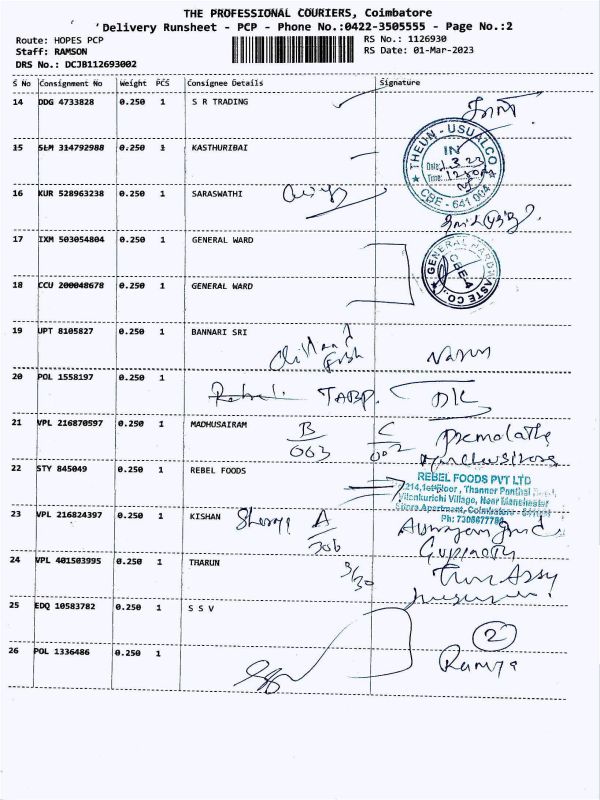 THE PROFESSIONAL COURIERS, Coimbatore
Delivery Runsheet - PCP - Phone No.:0422-3505555 - Page No.:2
Route: HOPES PCP
RS No.: 1126930
Staff: RAMSON
RS Date: 01-Mar-2023
DRS No.: DCJB112693002
S No Consignment No Weight PCS Consignee Details Signature
14 DDG 4733828 0.250 1 S R TRADING
15 SLM 314792988 0.250 1 KASTHURIBAI
THEUN - USUALCO
IN
Date: 1.3.23
Time:
CBE - 641 004
16 KUR 528963238 0.250 1 SARASWATHI
17 IXM 503054804 0.250 1 GENERAL WARD
GENERAL HARDWASTE CO.
CBE-4
18 CCU 200048678 0.250 1 GENERAL WARD
19 UPT 8105827 0.250 1 BANNARI SRI
20 POL 1558197 0.250 1
TABP. DK
21 VPL 216870597 0.250 1 MADHUSAIRAM B 003 C 002 Premalatha
22 STY 845049 0.250 1 REBEL FOODS
REBEL FOODS PVT LTD
214,1st Floor, Thanner Panthal
Vilankurichi Village, Near Manchester
Apartment, Coimbatore
23 VPL 216824397 0.250 1 KISHAN A 306
24 VPL 401503995 0.250 1 THARUN
25 EDQ 10583782 0.250 1 S S V
2
26 POL 1336486 0.250 1 Ramya